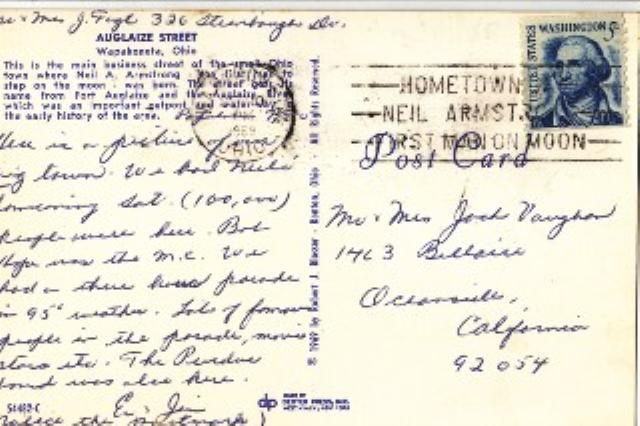 Mrs J. Figl 326 Steinbaugh Dr.
AUGLAIZE STREET
Wapakoneta, Ohio
This is the main business street of the small Ohio
town where Neil A. Armstrong, the first man to
step on the moon, was born. The street gets its
name from Fort Auglaize and the Auglaize River
which was an important outpost and waterway in
the early history of the area.
Here is a picture of our
big town. We had Neil's
homecoming Sat. (100,000)
people were here. Bob
Hope was the M.C. We
had a three hour parade
in 95° weather. Lots of famous
people in the parade, movie
stars etc. The Purdue
band was also here.
E. Jim
(notice the postmark)
51482-C
© 1969 by Robert J. Blazer · Ohio · All Rights Reserved.
dp MADE BY DEXTER PRESS, INC.
HOMETOWN
NEIL ARMST.
FIRST MAN ON MOON
UNITED STATES WASHINGTON 5¢
Post Card
Mr & Mrs Jack Vaughan
1463 Bellaire
Oceanside,
California
92054